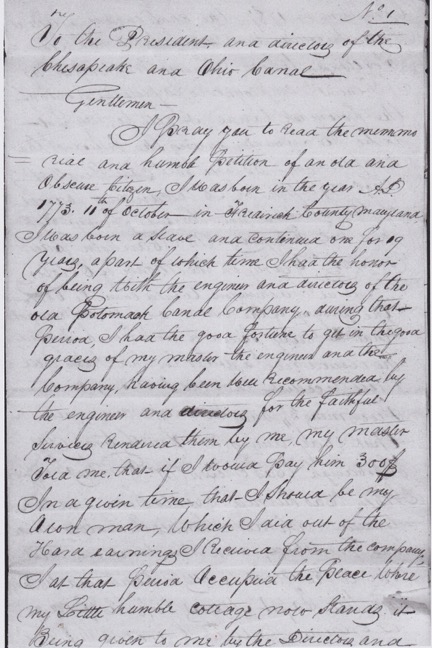 No. 1
To the President and directors of the
Chesapeake and Ohio Canal
Gentlemen —
I Pray you to read the memmo
rial and humble Petition of an old and
Obscure Citizen, I was born in the year A.D.
1773. 11th of October — in Frederick County maryland
I was born a slave and continued one for 19
years, a part of which time I had the honor
of being with the engineer and directors of the
old Potomack Canal Company. during that
Period, I had the good fortune to get in the good
graces of my master the engineer and the
Company, having been well recommended by
the engineer and directors for the faithful
services rendered them by me, my master
Told me, that if I would pay him 300$
In a given time, that I should be my
own man, which I did out of the
Hard earnings I Received from the company,
I at that Period Occupied the Place where
my Little humble cottage now stands it
Being given to me by the Directors and